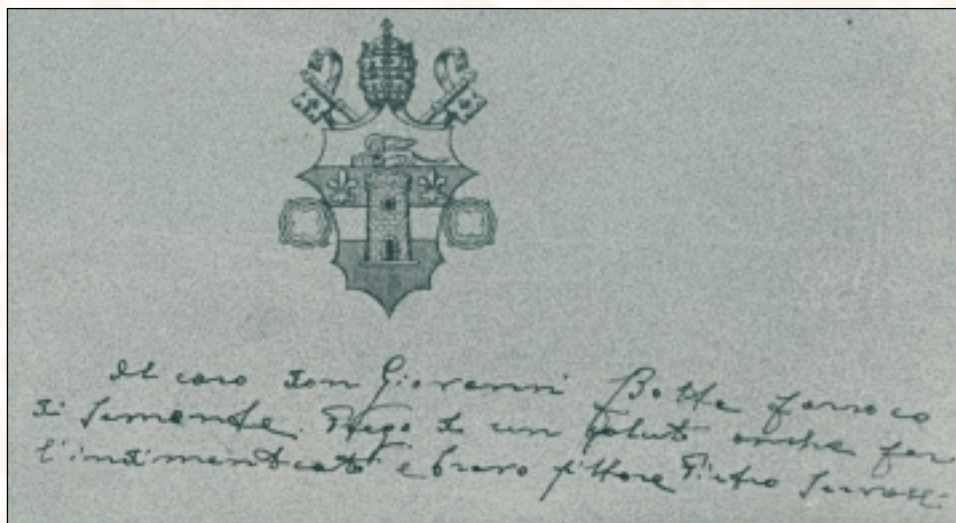 Al caro Don Giovanni Botta parroco
di Semonte. Prego di un saluto anche per
l'indimenticato e bravo pittore Pietro Servalli